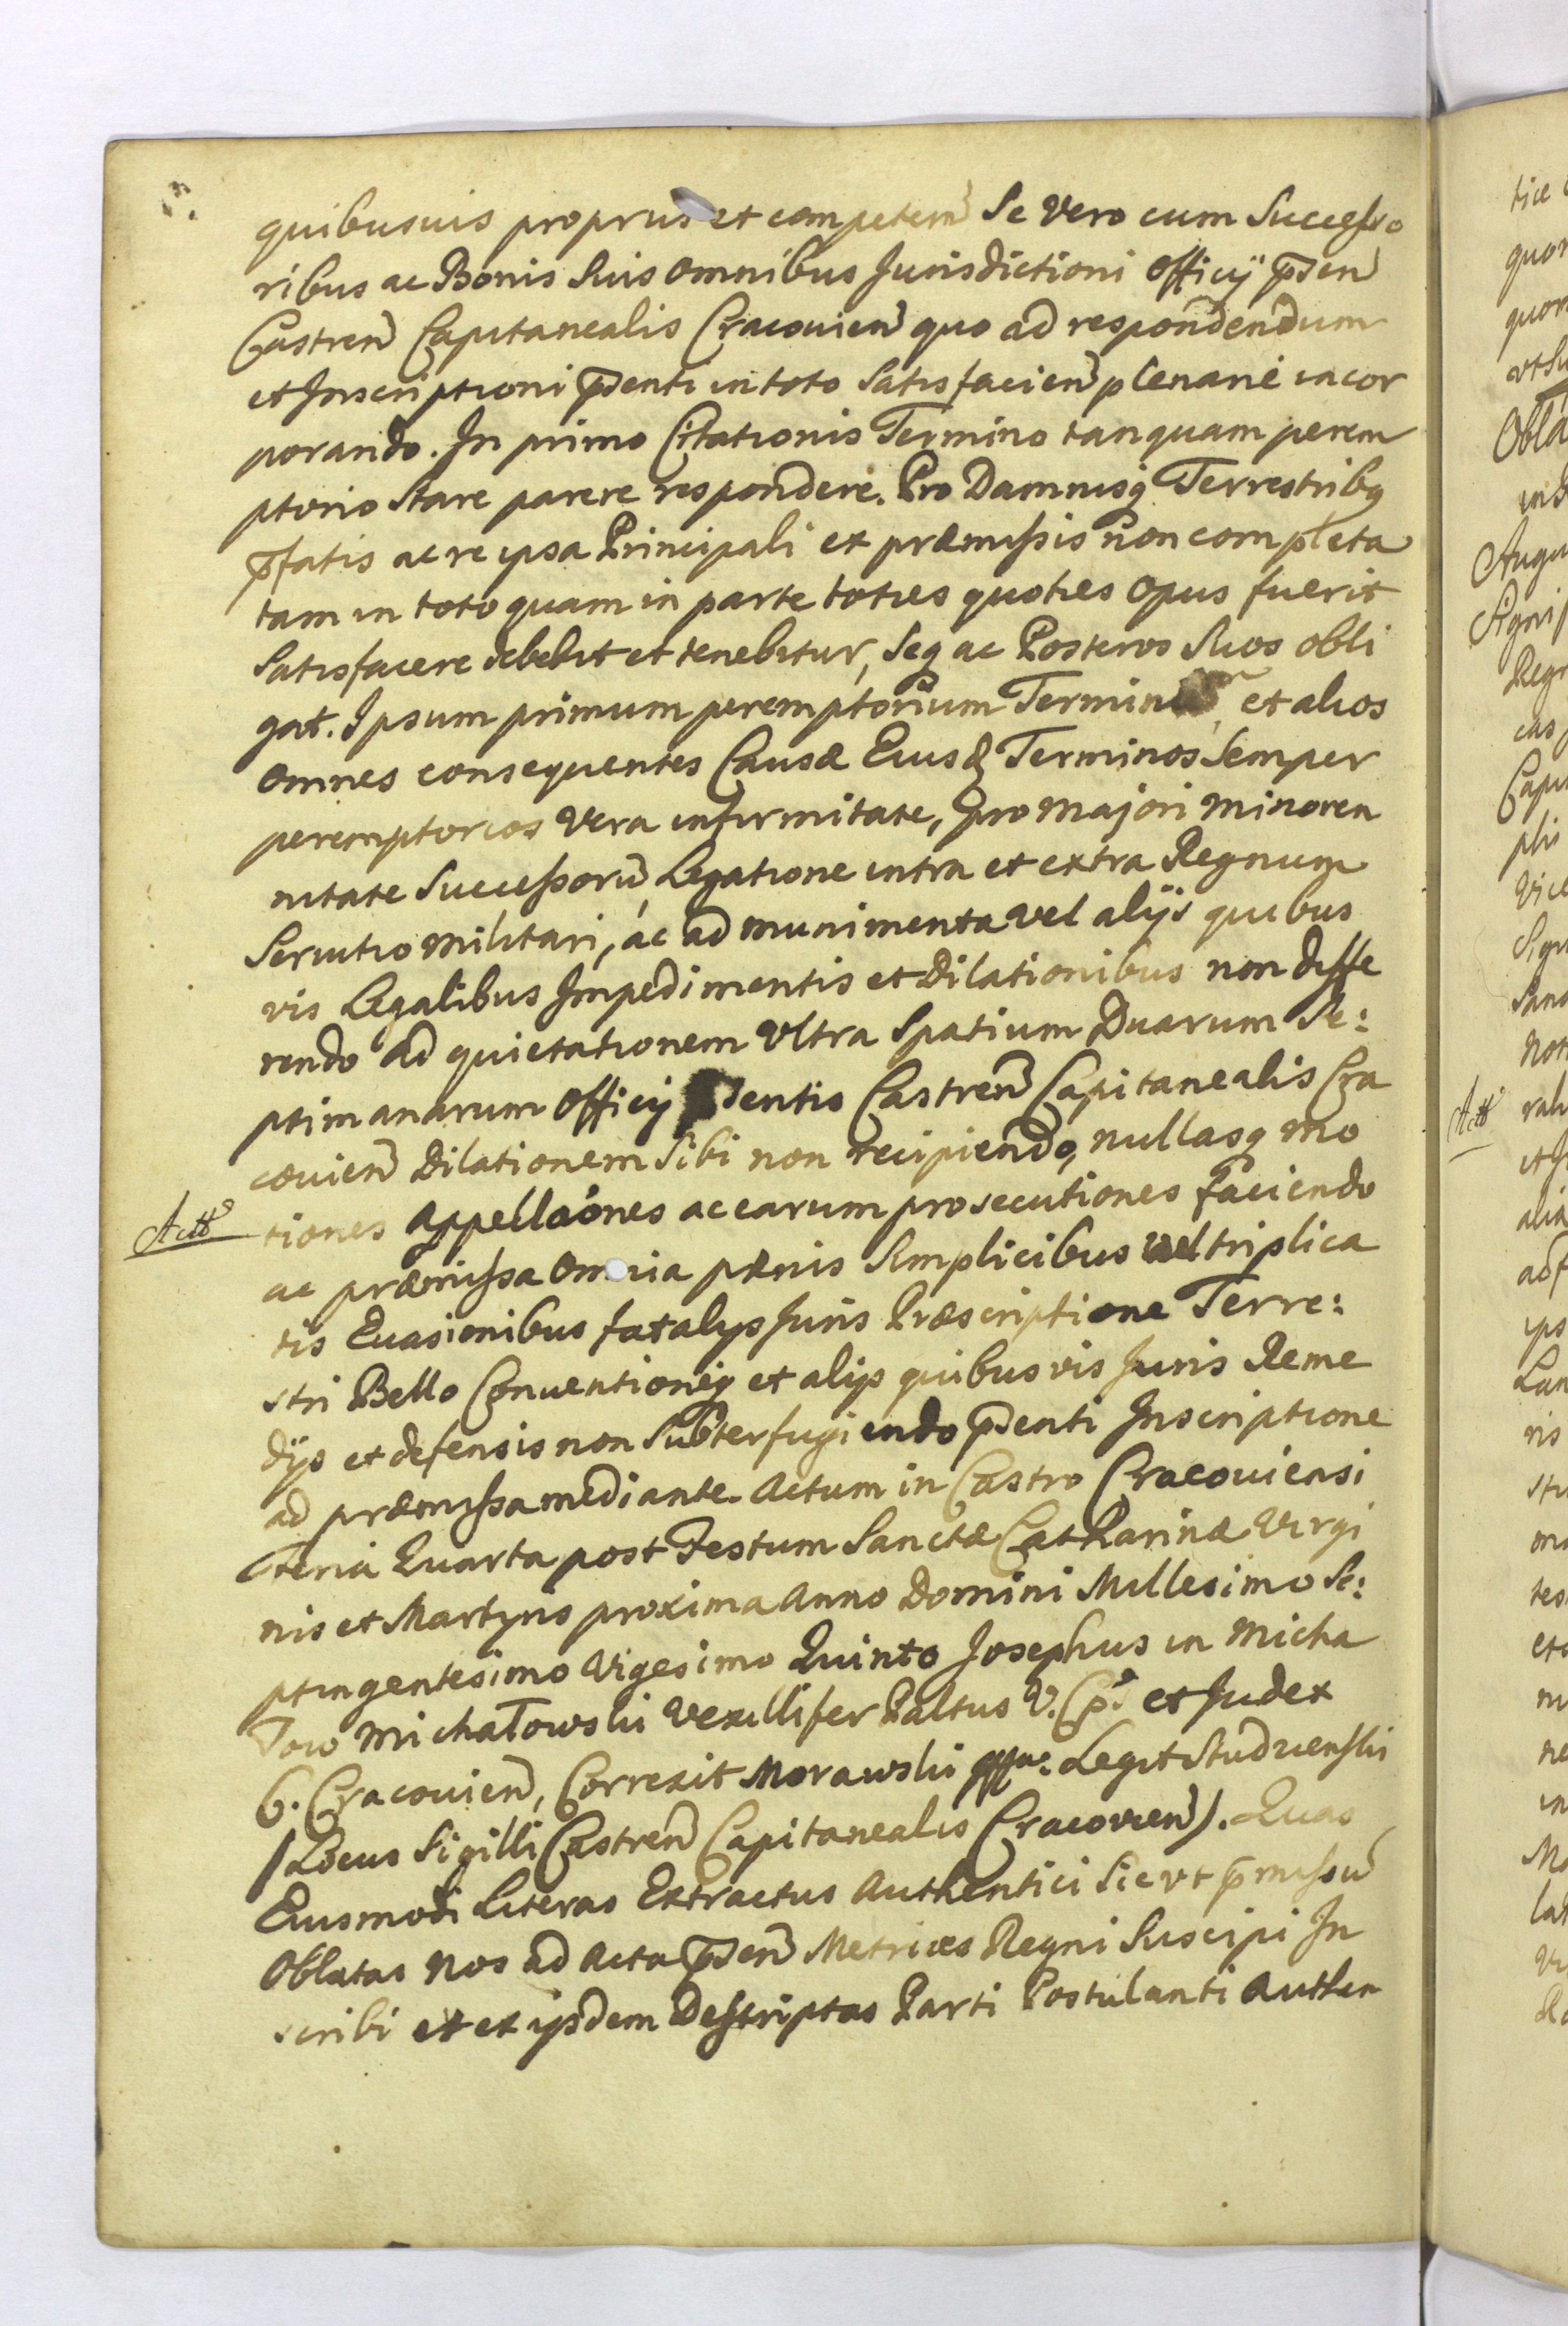 quibusuis proprijs et competen Se vero cum Successo
ribus ac Bonis Suis omnibus Jurisdictioni Officÿ p̄sen
Castren Capitanealis Cracouien quo ad respondendum
et Inscriptioni p̄senti in toto Satisfacien plenariè incor
porando. In primo Citationis Termino tanquam perem
ptorio Stare parere respondere. Pro Damnisq Terrestribq
p̄fatis ac re ipsa Principali et præmissis non completa
tam in toto quam in parte toties quoties opus fuerit
Satisfacere debebit et tenebitur, Seq ac Posteros Suos obli
gat. Ipsum primum peremptorium Terminū et alios
omnes consequentes Causæ Eiusd Terminos Semper
peremptorios Vera infirmitate, pro majori minoren
nitate Successorū Legatione intra et extra Regnum
Seruitio militari, ac ad munimenta vel alÿs quibus
vis Legalibus Impedimentis et Dilationibus non diffe
rendo ad quietationem Vltra Spatium Duarum Se:
ptimanarum Officij p̄sentis Castren Capitanealis Cra
couien Dilationem Sibi non recipiendo, nullasq mo
Actt
tiones Appellaōnes ac earum prosecutiones faciendo
ac præmissa omnia pænis Simplicibus vel triplica
tis Euasionibus fatalijs Juris Præscriptione Terre:
stri Bello Conuentioneq et alijs quibusvis Juris Reme
dÿs et defensis non Subterfugiendo p̄senti Inscriptione
ad præmissa mediante. Actum in Castro Cracouiensi
Feria Quarta post Festum Sanctæ Catharinæ Virgi
nis et Martyris proxima Anno Domini Millesimo Se:
ptingentesimo Vigesimo Quinto Josephus in Micha
łow Michałowski Vexillifer Pałtus V. Cp. et Judex
C. Cracouien, Correxit Morawski Legit Studzienski
/Locus Sigilli Castren Capitanealis Cracovien/. Quas
Eiusmodi Literas Extractus Authentici Sic vt p̄missū
Oblatas Nos ad Acta p̄sen Metrices Regni Suscipi In
scribi et ex ijsdem Descriptas Parti Postulanti Authen